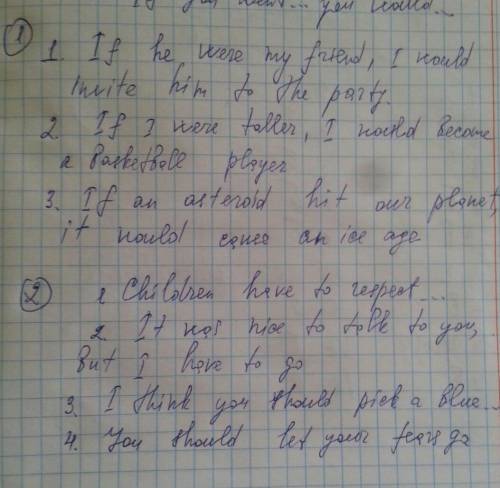 If you were... you would...
1
1. If he were my friend, I would
invite him to the party.
2. If I were taller, I would become
a basketball player
3. If an asteroid hit our planet,
it would cause an ice age
2
1 Children have to respect...
2. It was nice to talk to you,
but I have to go
3. I think you should pick a blue...
4. You should let your fears go